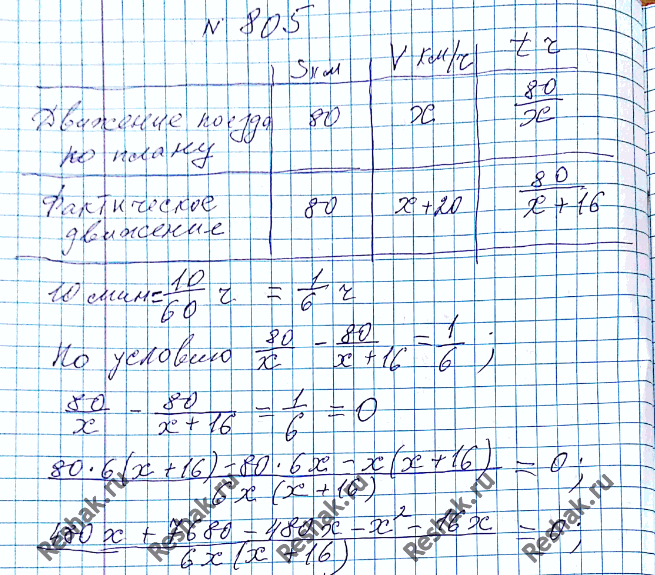 № 805
S км V км/ч t ч
Движение поезда по плану 80 x 80/x
Фактическое движение 80 x+20 80/(x+16)
10 мин = 10/60 ч = 1/6 ч
По условию 80/x - 80/(x+16) = 1/6 ;
80/x - 80/(x+16) = 1/6 = 0
(80·6(x+16) - 80·6x - x(x+16))/(6x(x+16)) = 0;
(480x + 7680 - 480x - x² - 16x)/(6x(x+16)) = 0;
Reshak.ru
Reshak.ru
Reshak.ru
Reshak.ru